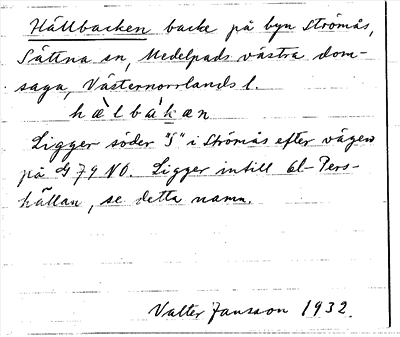 Hällbacken backe på byn Strömås,
Sättna sn, Medelpads västra dom-
saga, Västernorrlands l.
hæ̀lbàkæn
Ligger söder "S" i Strömås efter vägen
på G 74 NO. Ligger intill Ol-Pers-
hällan, se detta namn.
Valter Jansson 1932.